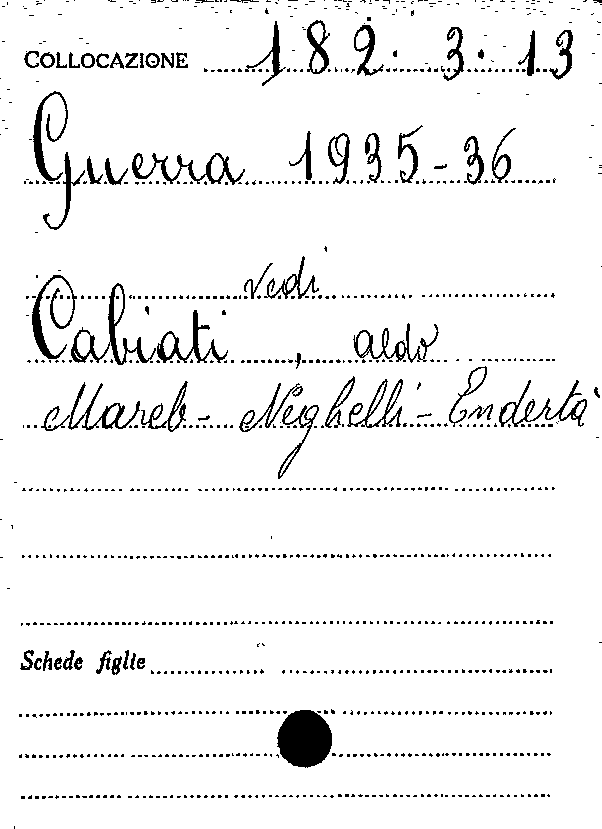 COLLOCAZIONE 182. 3. 13
Guerra 1935-36
vedi
Cabiati, aldo
Mareb - Neghelli - Endertà
Schede figlie